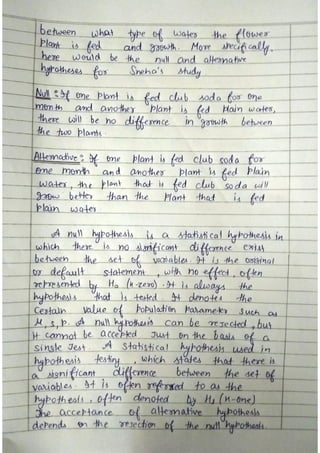 between what type of water the flower
plant is fed and growth. More specifically,
here would be the null and alternative
hypotheses for Sneha's study
Null : If one plant is fed club soda for one
month and another plant is fed plain water,
there will be no difference in growth between
the two plants.
Alternative : If one plant is fed club soda for
one month and another plant is fed plain
water, the plant that is fed club soda will
grow better than the plant that is fed
plain water.
A null hypothesis is a statistical hypothesis in
which there is no significant difference exist
between the set of variables. It is the original
or default statement, with no effect, often
represented by H₀ (H-zero). It is always the
hypothesis that is tested. It denotes the
certain value of population parameter such as
μ, s, p. A null hypothesis can be rejected, but
it cannot be accepted just on the basis of a
single test. A statistical hypothesis used in
hypothesis testing, which states that there is
a significant difference between the set of
variables. It is often referred to as the
hypothesis, often denoted by H₁ (H-one)
The acceptance of alternative hypothesis
depends on the rejection of the null hypothesis.